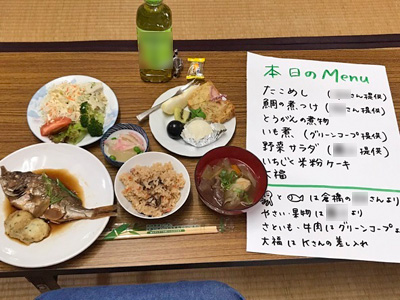 本日のMenu
たこめし (さん提供)
鯛の煮つけ (さん提供)
とうがんの煮物
いも煮 (グリーンコープ提供)
野菜サラダ (提供)
いちじくと米粉ケーキ
大福
とは倉橋のさんより
やさい・果物は より
さといも・牛肉はグリーンコープよ
大福はKさんの差し入れ